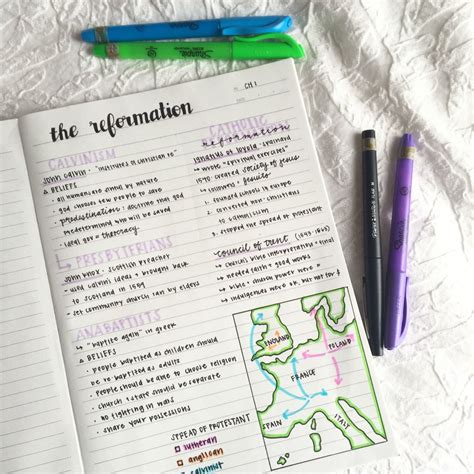 CH 1
the reformation
CALVINISM
JOHN CALVIN "institutes of christian re"
& BELIEFS
• all humans are sinful by nature
• god chooses few people to save
• predestination: doctrine that god
predetermined who will be saved
• local gov = theocracy
PRESBYTERIANS
JOHN KNOX: Scottish preacher
used calvin's ideas + brought back
to scotland in 1559
• set community church ran by elders
ANABAPTISTS
"baptize again" in greek
& BELIEFS
• people baptized as children should
be re-baptized as adults
• people should be able to choose religion
• church + state should be separate
• no fighting in wars
• share your possessions
CATHOLIC
reformation
Ignatius of Loyola: spaniard
wrote "spiritual exercises"
1540 created society of jesus
members = jesuits
1. founded schools in europe
2. converted non-christians
to catholicism
3. stopped the spread of protestant
council of trent (1545-1563)
church's bible interpretation = final
needed faith + good works
bible + church power
indulgences
SPREAD OF PROTESTANT
lutheran
anglican
calvinist
ENGLAND
POLAND
FRANCE
SPAIN
ITALY
Sharpie